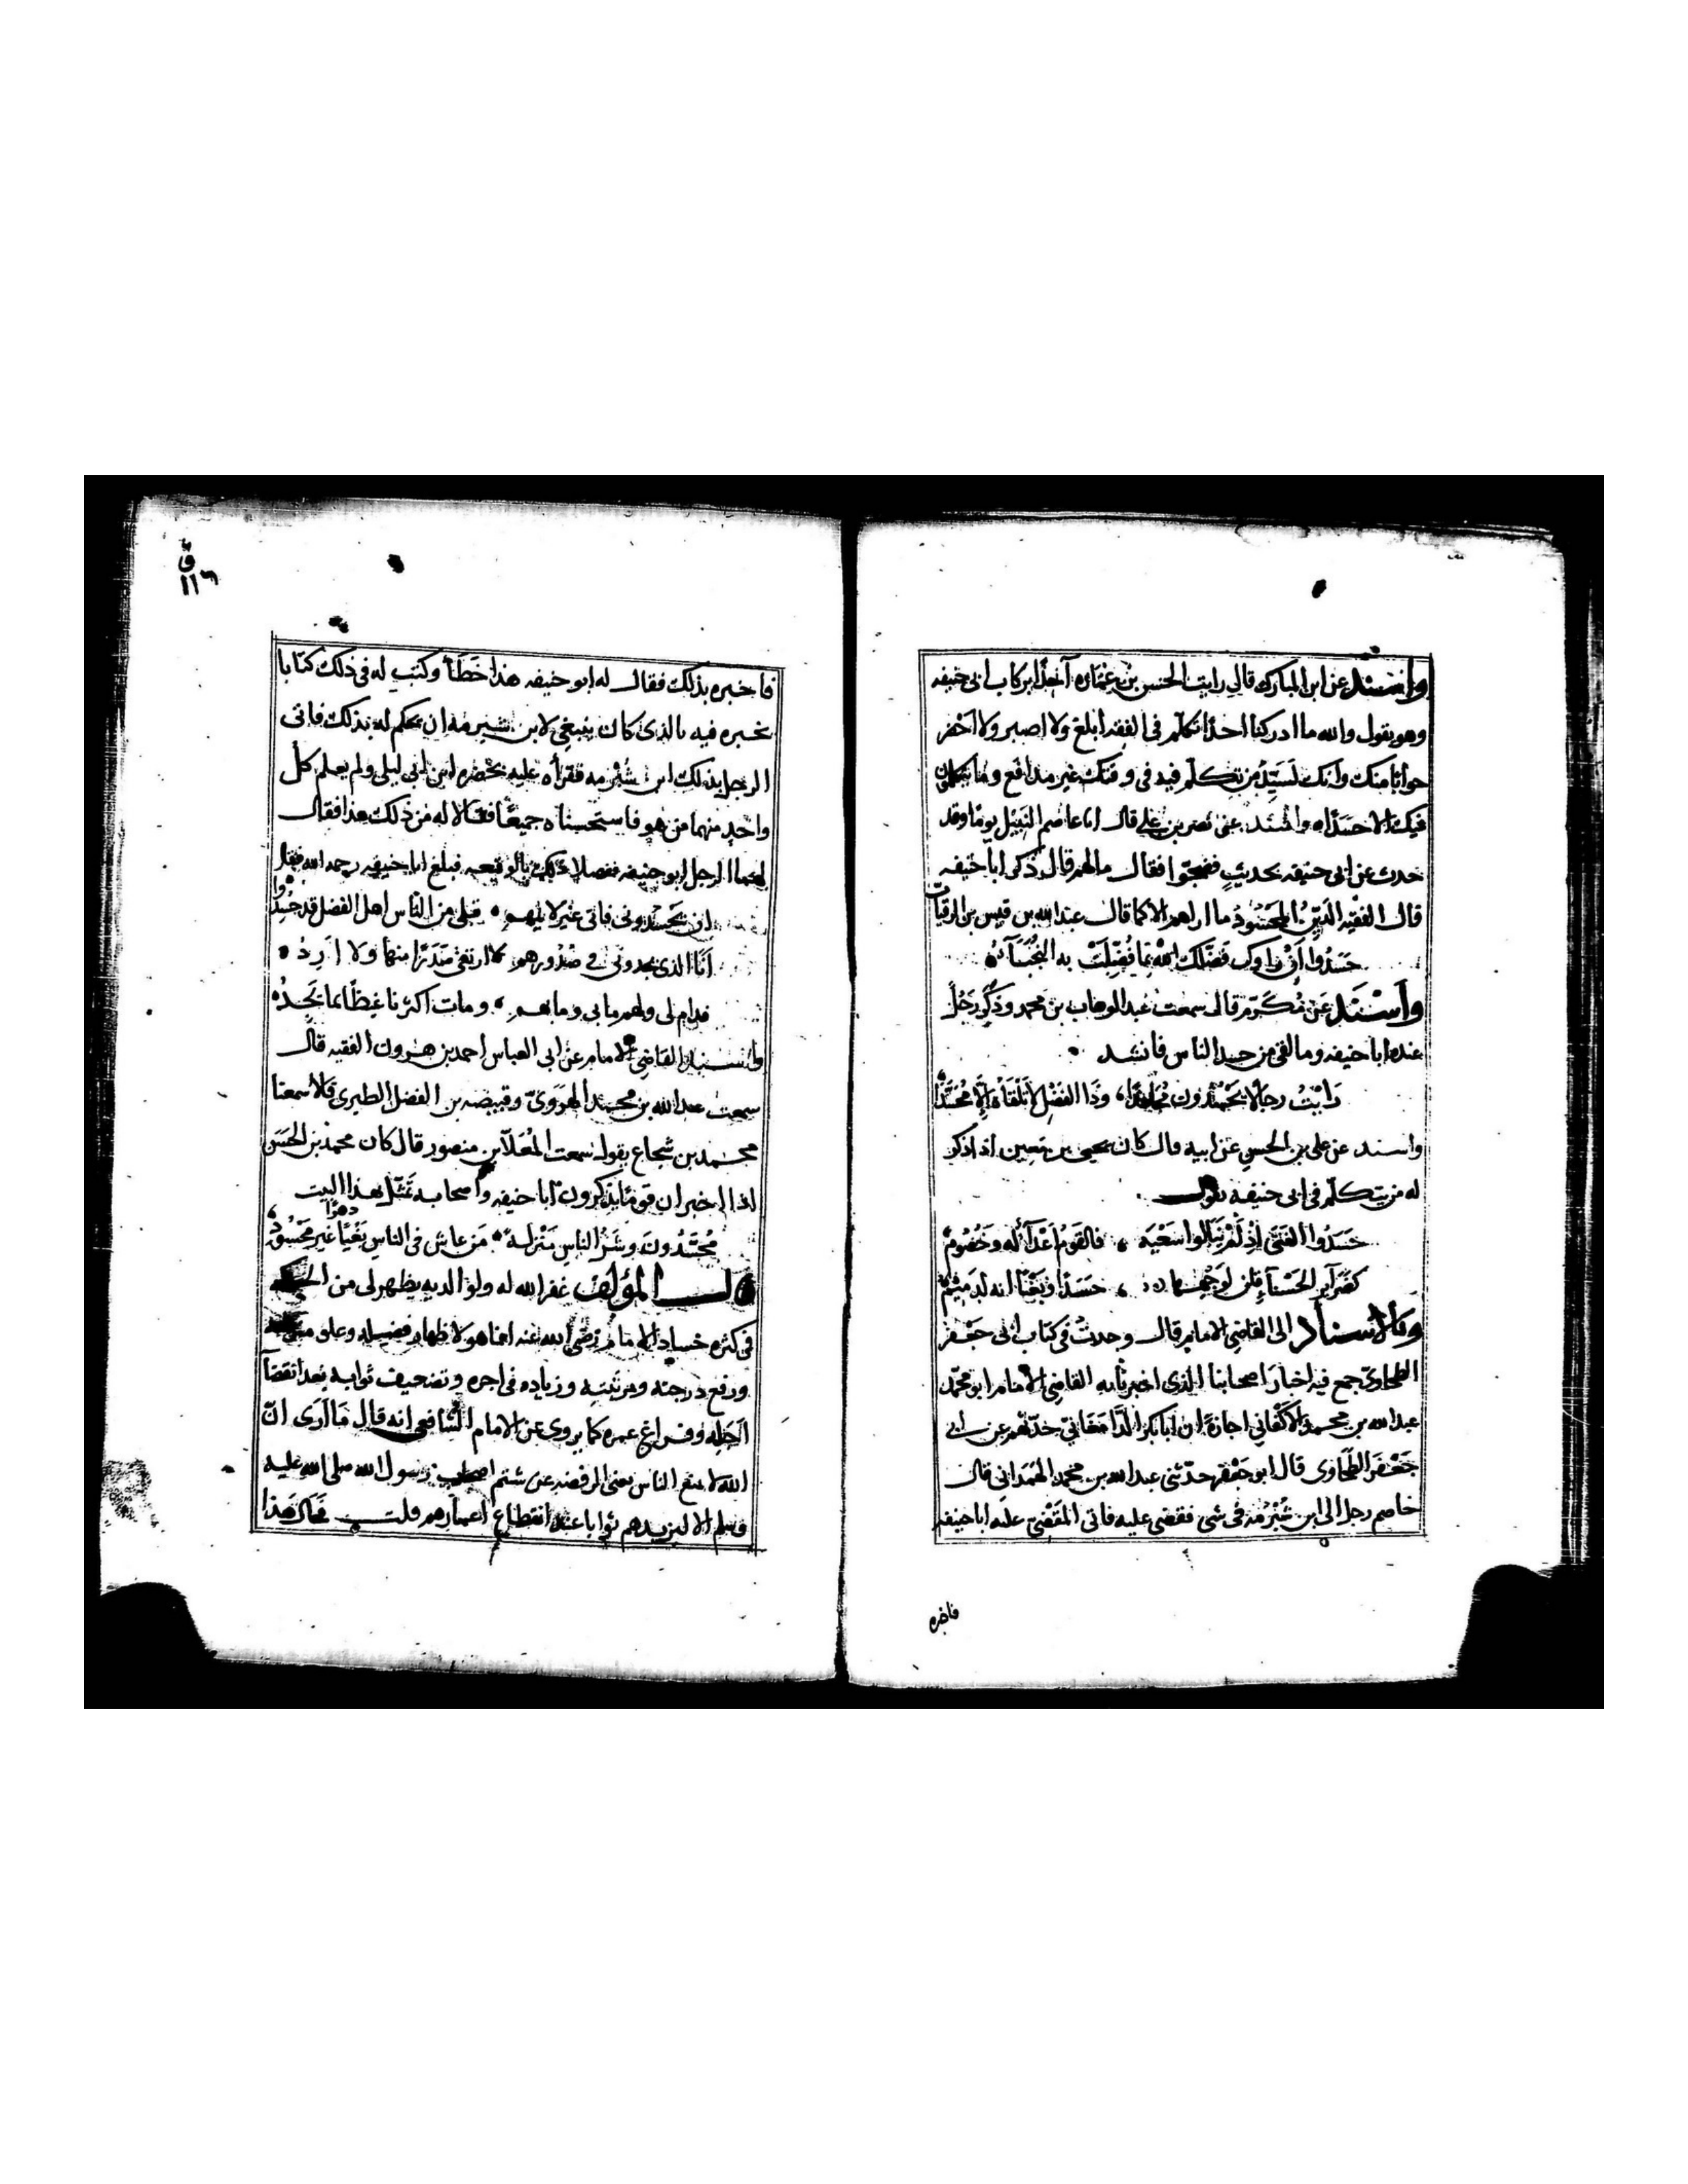 واسند عن ابن المبارك قال رايت الحسن بن عماره آخذا بركاب ابى حنيفه
وهو يقول والله ما ادركنا احدا تكلم فى الفقه ابلغ ولا اصبر ولا احضر
جوابا منك وانك لسيد من تكلم فيه فى وقتك غير مدافع وما يتكلمون
فيك الا حسدا واسند عن نصر بن على قال ابا عاصم النبيل يوما وقد
حدث عن ابى حنيفه بحديث فضجوا فقال مالهم قال ذكر ابا حنيفه
قال الفقيه الدين المحسود ما اراهم الا كما قال عبد الله بن قيس بن الرقيات
حسدوا ان راوك فضلك الله بما فضلت به النجباء
واسند عن مكرم قال سمعت عبد الوهاب بن محمد وذكر رجل
عنده ابا حنيفه وما لقى من حسد الناس فانشد
رايت رجالا يحسدون مجاهدا وذا الفضل لا تلقاه الا محسدا
واسند عن على بن الحسن عن ابيه قال كان يحيى بن معين اذا ذكر
له من يتكلم فى ابى حنيفه يقول
حسدوا الفتى اذ لم ينالوا سعيه فالقوم اعداء له وخصوم
كضراير الحسناء قلن لوجهها حسدا وبغيا انه لدميم
وبالاسناد الى القاضى الامام قال وجدت فى كتاب ابى جعفر
الطحاوى جمع فيه اخبار اصحابنا الذى اخبرنا به القاضى الامام ابو محمد
عبد الله بن محمد الاكفانى اجازة ان ابا بكر الدامغانى حدثهم عن ابى
جعفر الطحاوى قال ابو جعفر حدثنى عبد الله بن محمد الهمدانى قال
خاصم رجل الى ابن شبرمه فى شى فقضى عليه فاتى المقضى عليه ابا حنيفه
فاخبره
ق
١١٦
فاخبره بذلك فقال له ابو حنيفه هذا خطأ وكتب له فى ذلك كتابا
يخبره فيه بالذى كان ينبغى لابن شبرمه ان يحكم له بذلك فاتى
الرجل بذلك ابن شبرمه فقرأه عليه بحضره ابن ابى ليلى ولم يعلم كل
واحد منهما من هو فاستحسناه جميعا فقالا له من ذلك هذا فقال
لهما الرجل ابو حنيفه بالوقيعه فبلغ ابا حنيفه رحمه الله فقال
ان يحسدونى فانى غير لايمهم قبلى من الناس اهل الفضل قد حسدوا
انا الذى يجدونى فى صدورهم لا ارتقى صدرا منها ولا ارد
فدام لى ولهم مابى وما بهم ومات اكثرنا غيظا بما يجد
واسند القاضى الامام عن ابى العباس احمد بن هرون الفقيه قال
سمعت عبد الله بن محمد الهروى وقبيصه بن الفضل الطبرى قالا سمعنا
محمد بن شجاع يقول سمعت المعلا بن منصور قال كان محمد بن الحسن
اذا اخبر ان قوما يذكرون ابا حنيفه واصحابه تمثل بهذا البيت
محسدون وشر الناس منزلة من عاش فى الناس غير محسود
قال المؤلف غفر الله له ولوالديه يظهر لى من
فى كثره حساد الامام رضى الله عنه انما هو لاظهار فضيله وعلو
ورفع درجته ومرتبته وزياده فى اجره وتضعيف ثوابه بعد انقضا
اجله وفراغ عمره كما يروى عن الامام الشافعى انه قال ما ارى ان
الله لا منع الناس يعنى الرفضه عن شتم اصحاب رسول الله صلى الله عليه
وسلم الا ليزيدهم ثوابا عند انقطاع اعمارهم قلت هذا